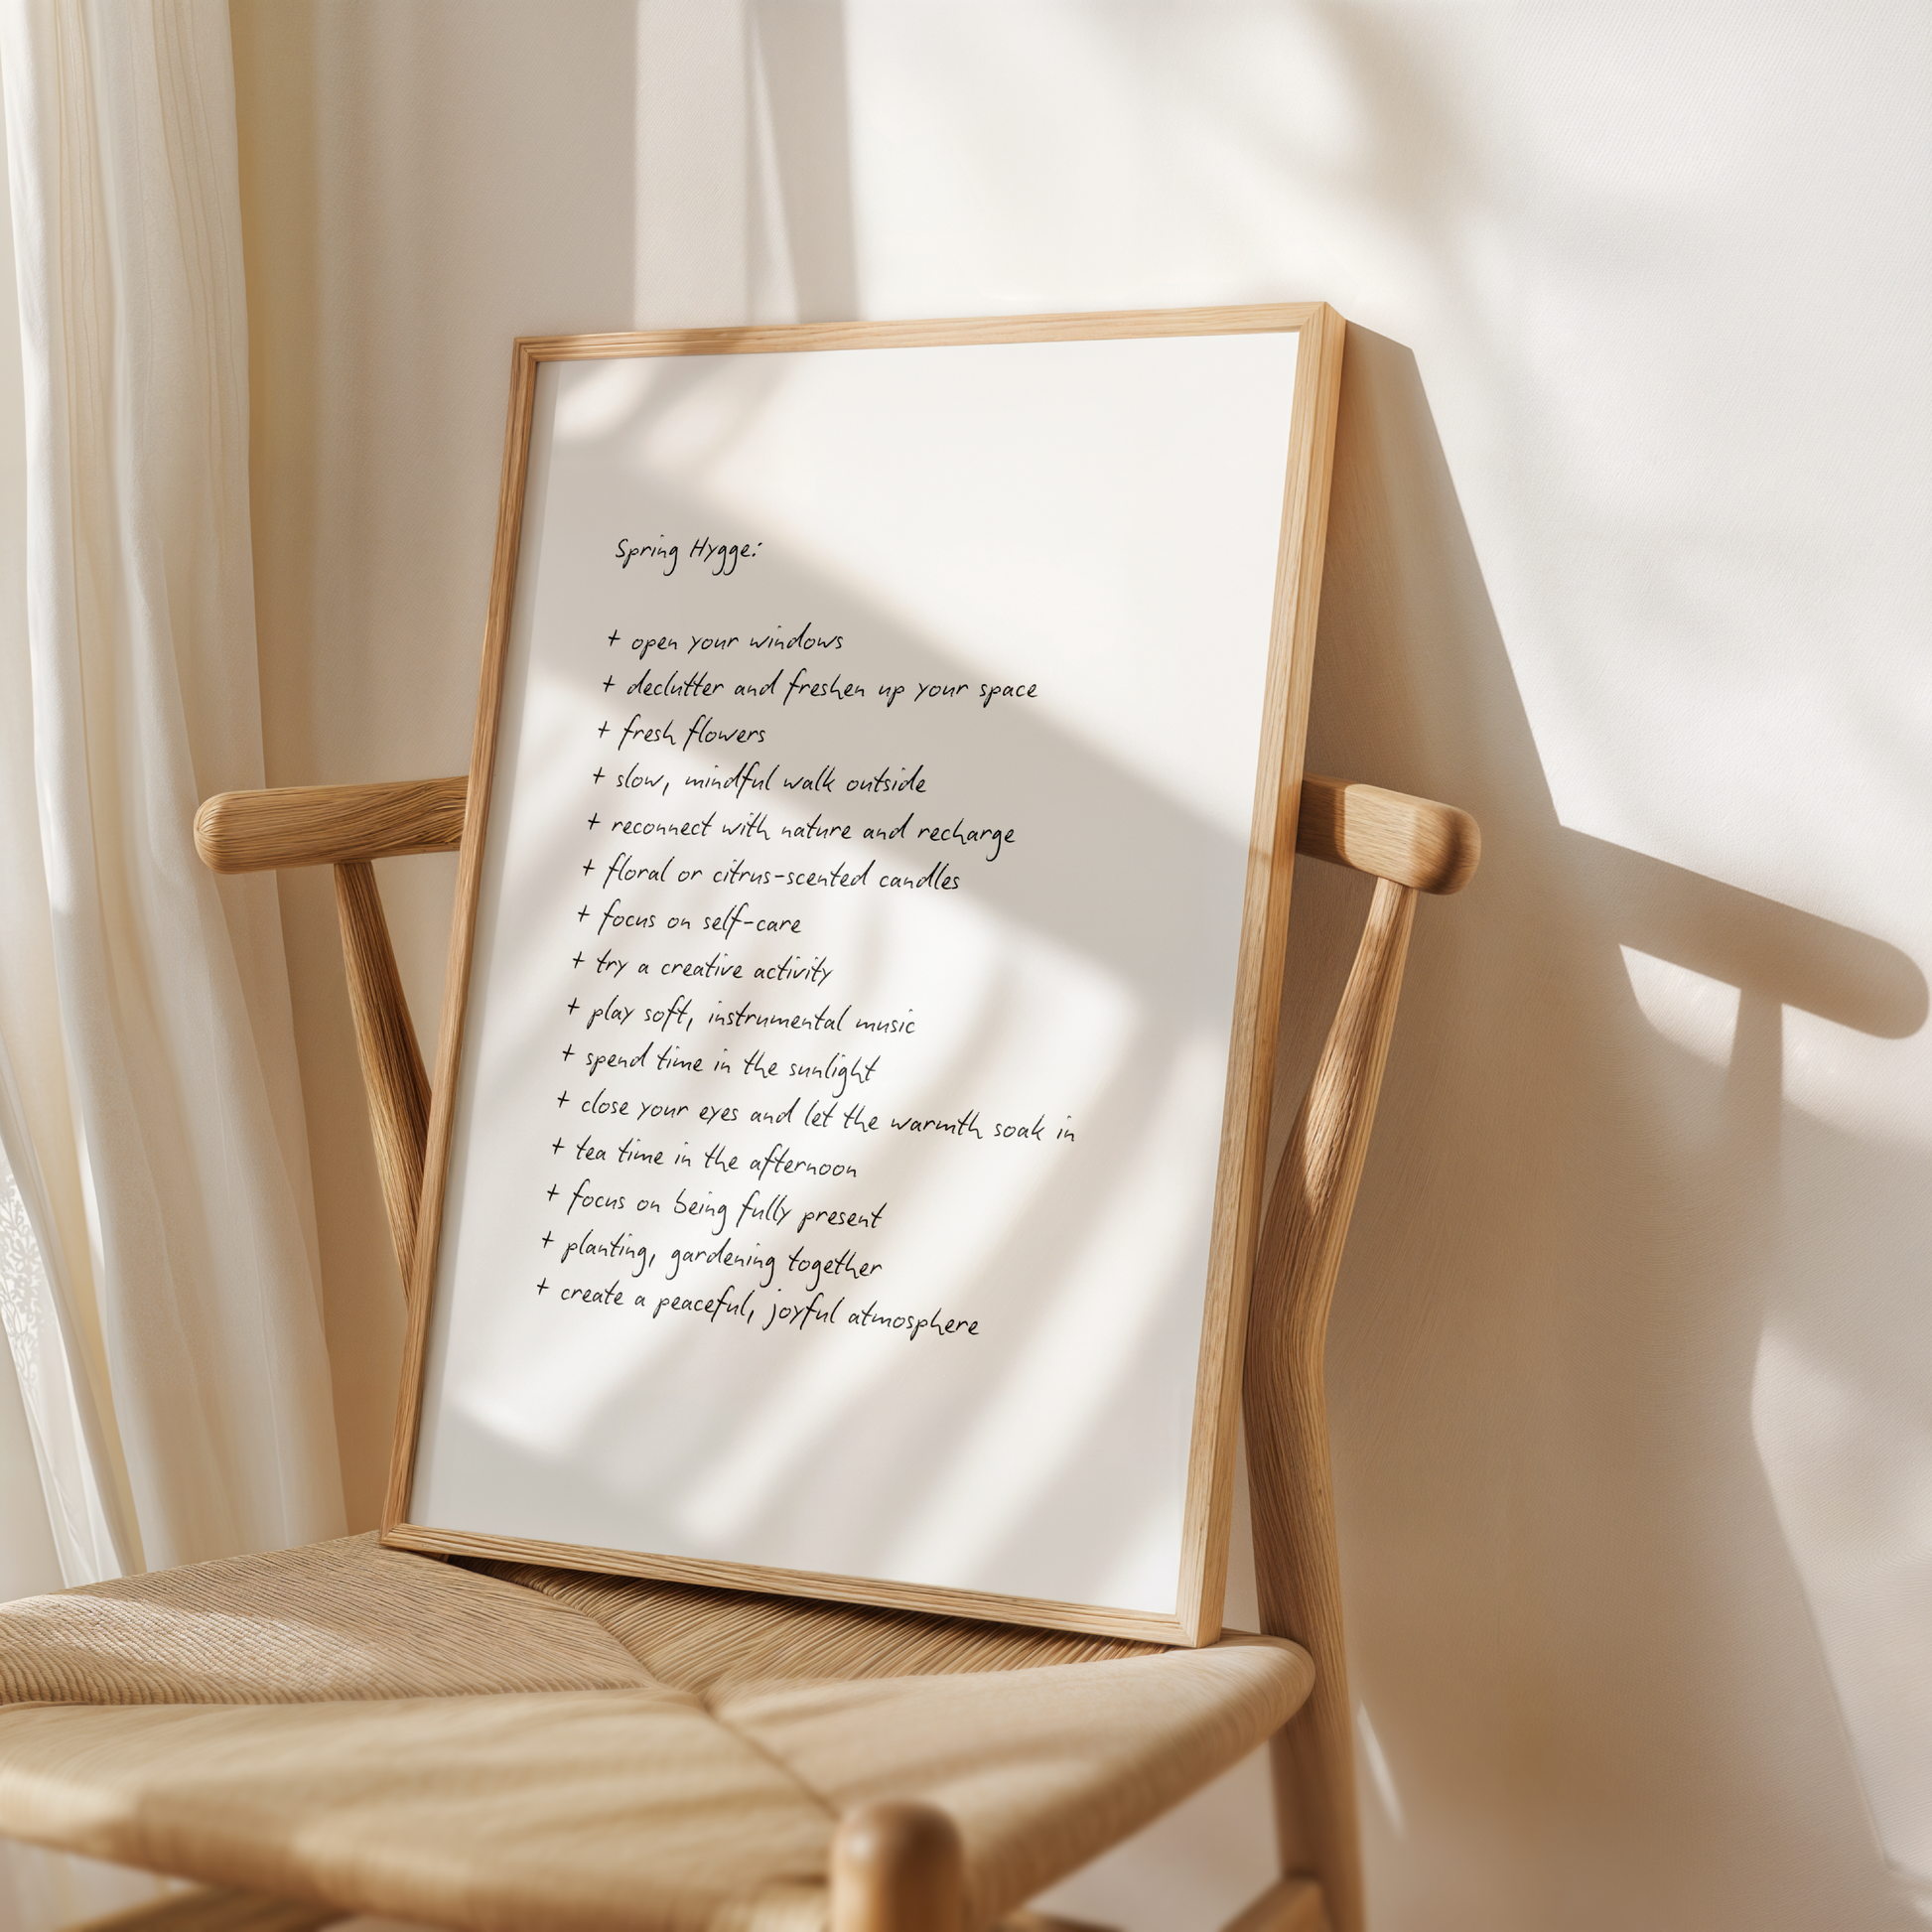 Spring Hygge:
+ open your windows
+ declutter and freshen up your space
+ fresh flowers
+ slow, mindful walk outside
+ reconnect with nature and recharge
+ floral or citrus-scented candles
+ focus on self-care
+ try a creative activity
+ play soft, instrumental music
+ spend time in the sunlight
+ close your eyes and let the warmth soak in
+ tea time in the afternoon
+ focus on being fully present
+ planting, gardening together
+ create a peaceful, joyful atmosphere